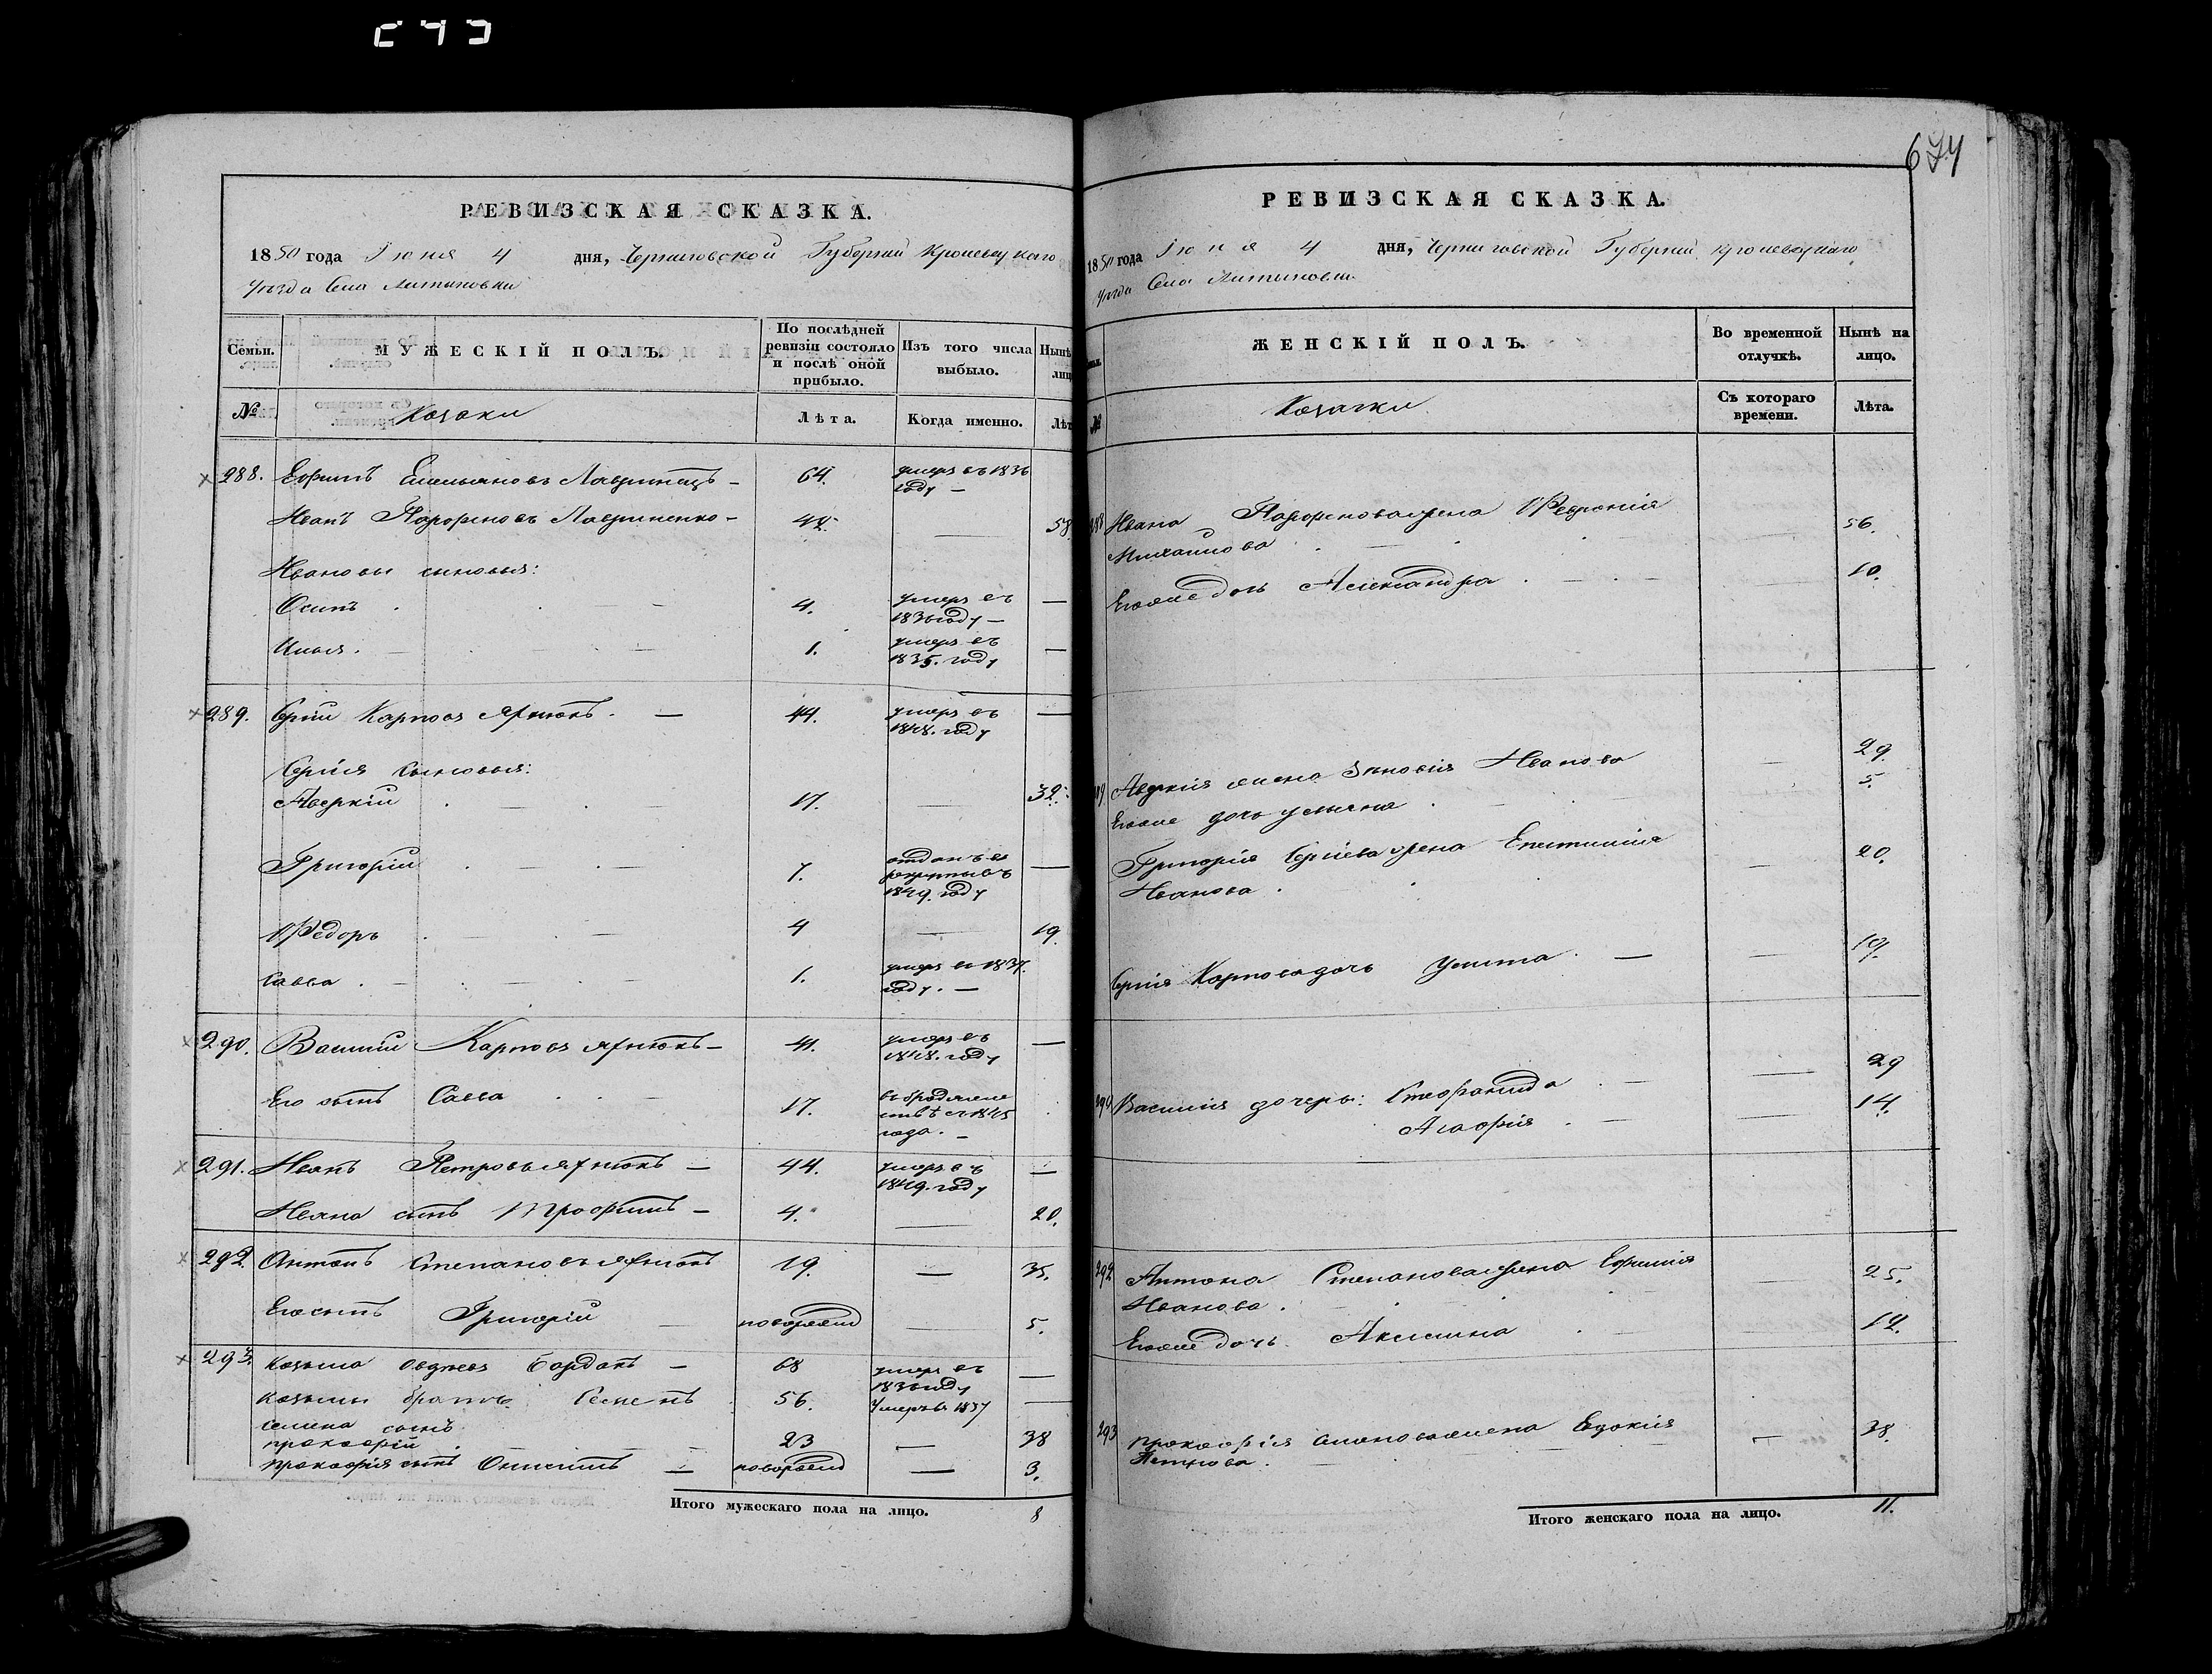 674
РЕВИЗСКАЯ СКАЗКА.
1850 года Июня 4 дня, Черниговской Губерніи Кролевецкаго
уѣзда Села Литвиновки
Семьи. МУЖЕСКІЙ ПОЛЪ. По послѣдней ревизіи состояло и послѣ оной прибыло. Изъ того числа выбыло. Нынѣ
№ Козаки Лѣта. Когда именно. Лѣт
288. Ефимъ Емельяновъ 64. умеръ въ 1836
году —
Иванъ Парфеновъ Лавриненко — 58
Ивановы сыновья:
Осипъ 4. умеръ въ —
1836 году —
Илья. 1. умеръ въ —
1835. году
289. Сергій Карповъ 44. умеръ въ —
1848. году
Сергія сыновья:
Аверкій 17. — 32.
Григорій 7. отданъ въ —
рекруты въ
1849. году
Федоръ 4 — 19.
Савва 1. умеръ въ 1837.
году. —
290. Василій Карповъ 41. умеръ въ —
1848. году
Его сынъ Савва 17. въ бродяже
ствѣ съ 1845
года. —
291. Иванъ Петровъ 44. умеръ въ —
1849. году
Ивана сынъ Трофимъ — 4. — 20.
292. Антонъ Степановъ 19. — 35.
Его сынъ Григорій новорожд — 5.
293. Козьма Авдѣевъ 68 умеръ въ —
1836 году
Козьмы братъ Семенъ 56. умеръ въ 1837 —
Семена сынъ
Прокофій 23 — 38
Прокофія сынъ Онисимъ — новорожд — 3.
Итого мужескаго пола на лицо. 8
РЕВИЗСКАЯ СКАЗКА.
1850 года Июня 4 дня, Черниговской Губерніи Кролевецкаго
уѣзда Села Литвиновки
ЖЕНСКІЙ ПОЛЪ. Во временной отлучкѣ. Нынѣ на лицо.
№ Козачки Съ котораго времени. Лѣта.
288 Ивана Парфенова жена Февронія 56.
Михайлова
Его же дочь Александра 10.
Аверкія жена Зиновія Иванова — 29.
Его же дочь Ульяна 5.
Григорія Сергіева жена 20.
Иванова
Сергія Карпова дочь Улита — 19.
290 Василія дочери: Стефанида — 29
Агафія — 14.
292 Антона Степанова жена Ефимія — 25.
Иванова.
Его же дочь Аксинія 12.
293 Прокофія Семенова жена Евдокія — 38.
Петрова.
Итого женскаго пола на лицо. 11.